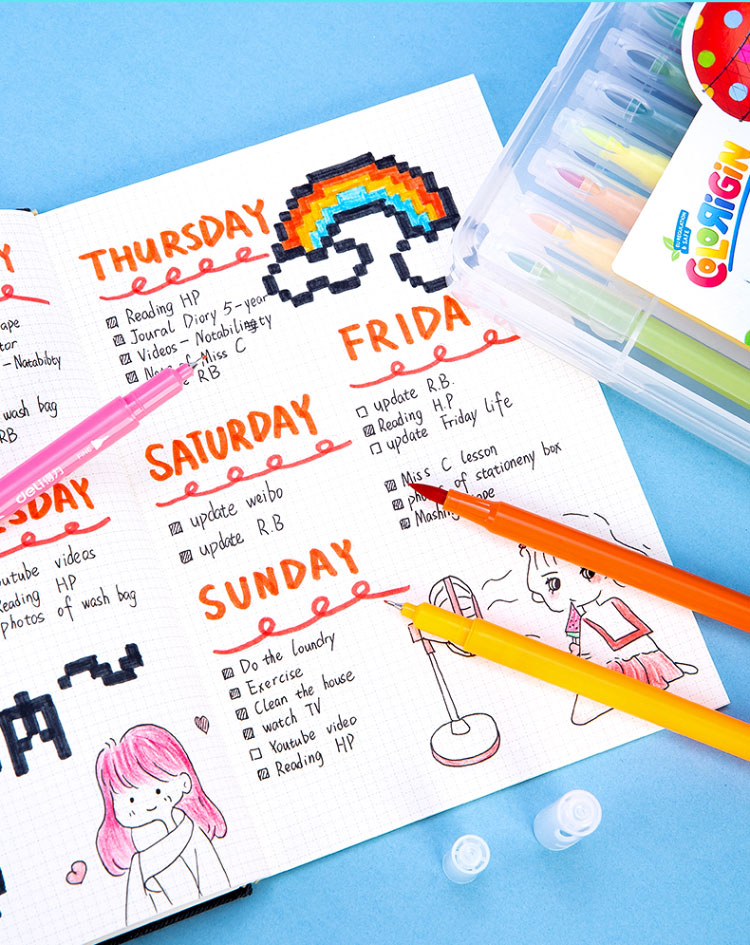 Y
THURSDAY
Reading HP
Joural Diory 5-year
Videos - Notabilingty
Miss C
RB
- Notabilbty
wash bag
RB
SDAY
outube videos
eading HP
photos of wash bag
FRIDA
update R.B.
Reading H.P
update Friday life
Miss C lesson
of stationeny box
Mashing
SATURDAY
update weibo
update R.B
SUNDAY
Do the loundry
Exercise
Clean the house
watch TV
Youtube video
Reading HP
deli 得力
COLORIGIN
EU REGULATION
& SAFE